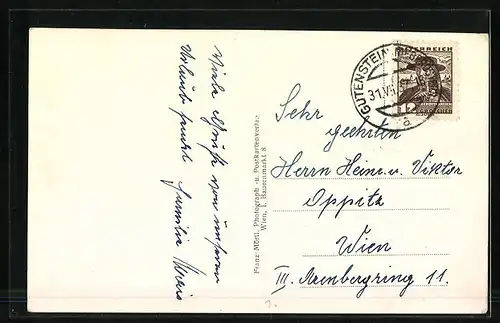 Viele Grüße von unserem
Urlaub sendet Familie
Franz Mörtl, Photograph - u. Postkartenverlag
Wien, I. Bauernmarkt 8
GUTENSTEIN
31.V
a
ÖSTERREICH
12
Sehr
geehrten
Herrn Heinr. u. Viktor
Oppitz
Wien
III. Arenbergring 11.